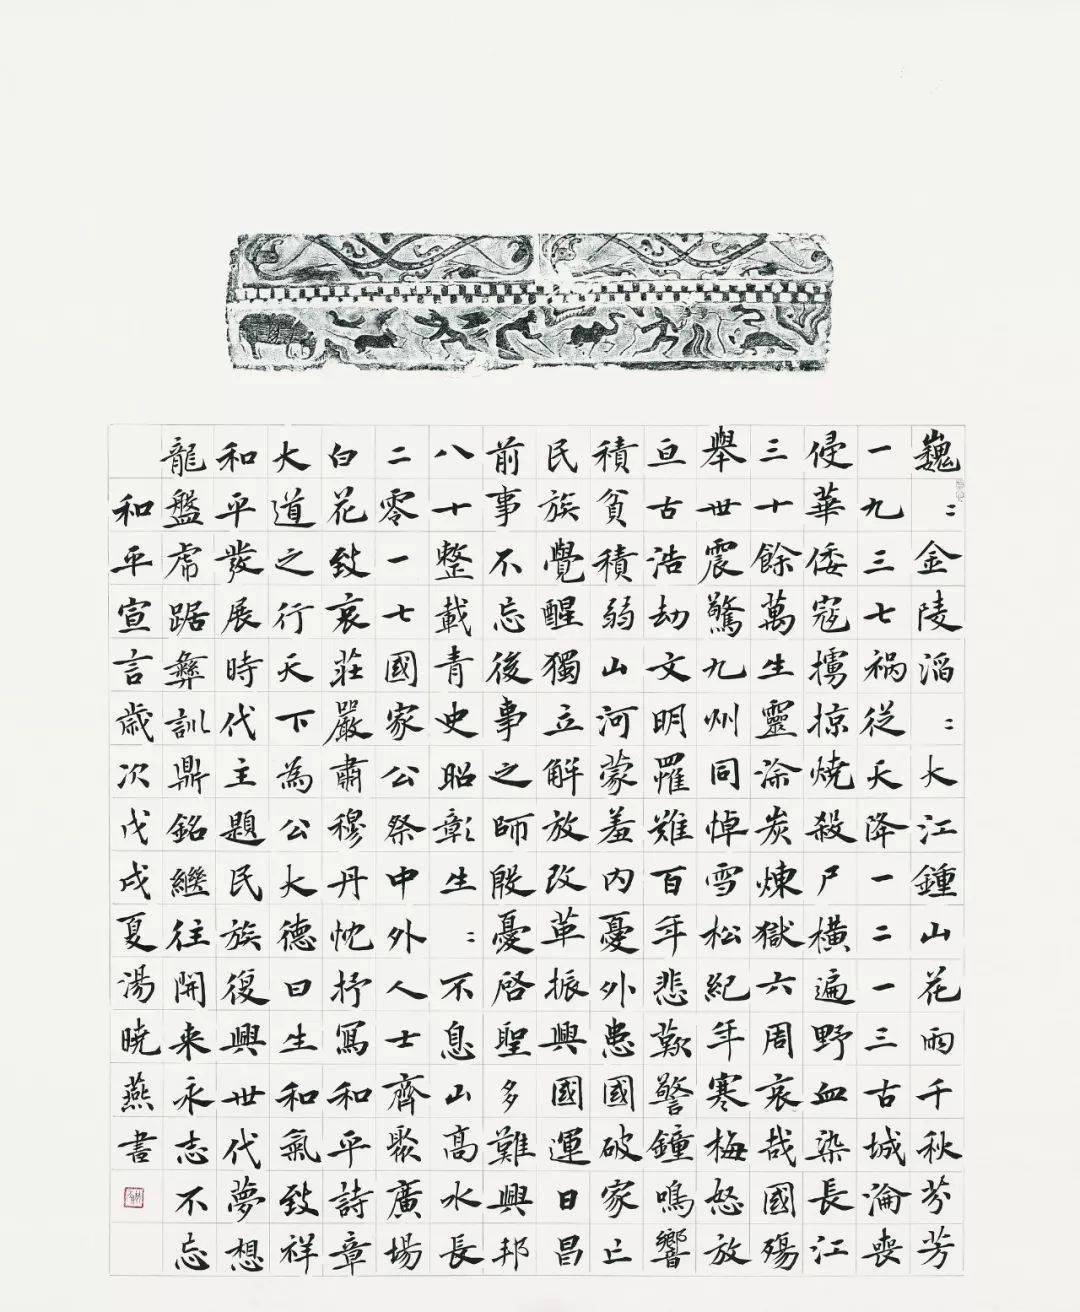 巍：金陵滔：大江鍾山花雨千秋芬芳
一九三七祸從天降一二一三古城淪喪
侵華倭寇擄掠燒殺尸橫遍野血染長江
三十餘萬生靈涂炭煉獄六周哀哉國殤
舉世震驚九州同悼雪松紀年寒梅怒放
亘古浩劫文明罹難百年悲歎警鐘鳴響
積貧積弱山河蒙羞内憂外患國破家亡
民族覺醒獨立解放改革振興國運日昌
前事不忘後事之師殷憂啓聖多難興邦
八十整載青史昭彰生：不息山高水長
二零一七國家公祭中外人士齊聚廣場
白花致哀莊嚴肅穆丹忱抒寫和平詩章
大道之行天下為公大德曰生和氣致祥
和平發展時代主題民族復興世代夢想
龍盤虎踞彝訓鼎銘繼往開来永志不忘
和平宣言歲次戊戌夏湯曉燕書